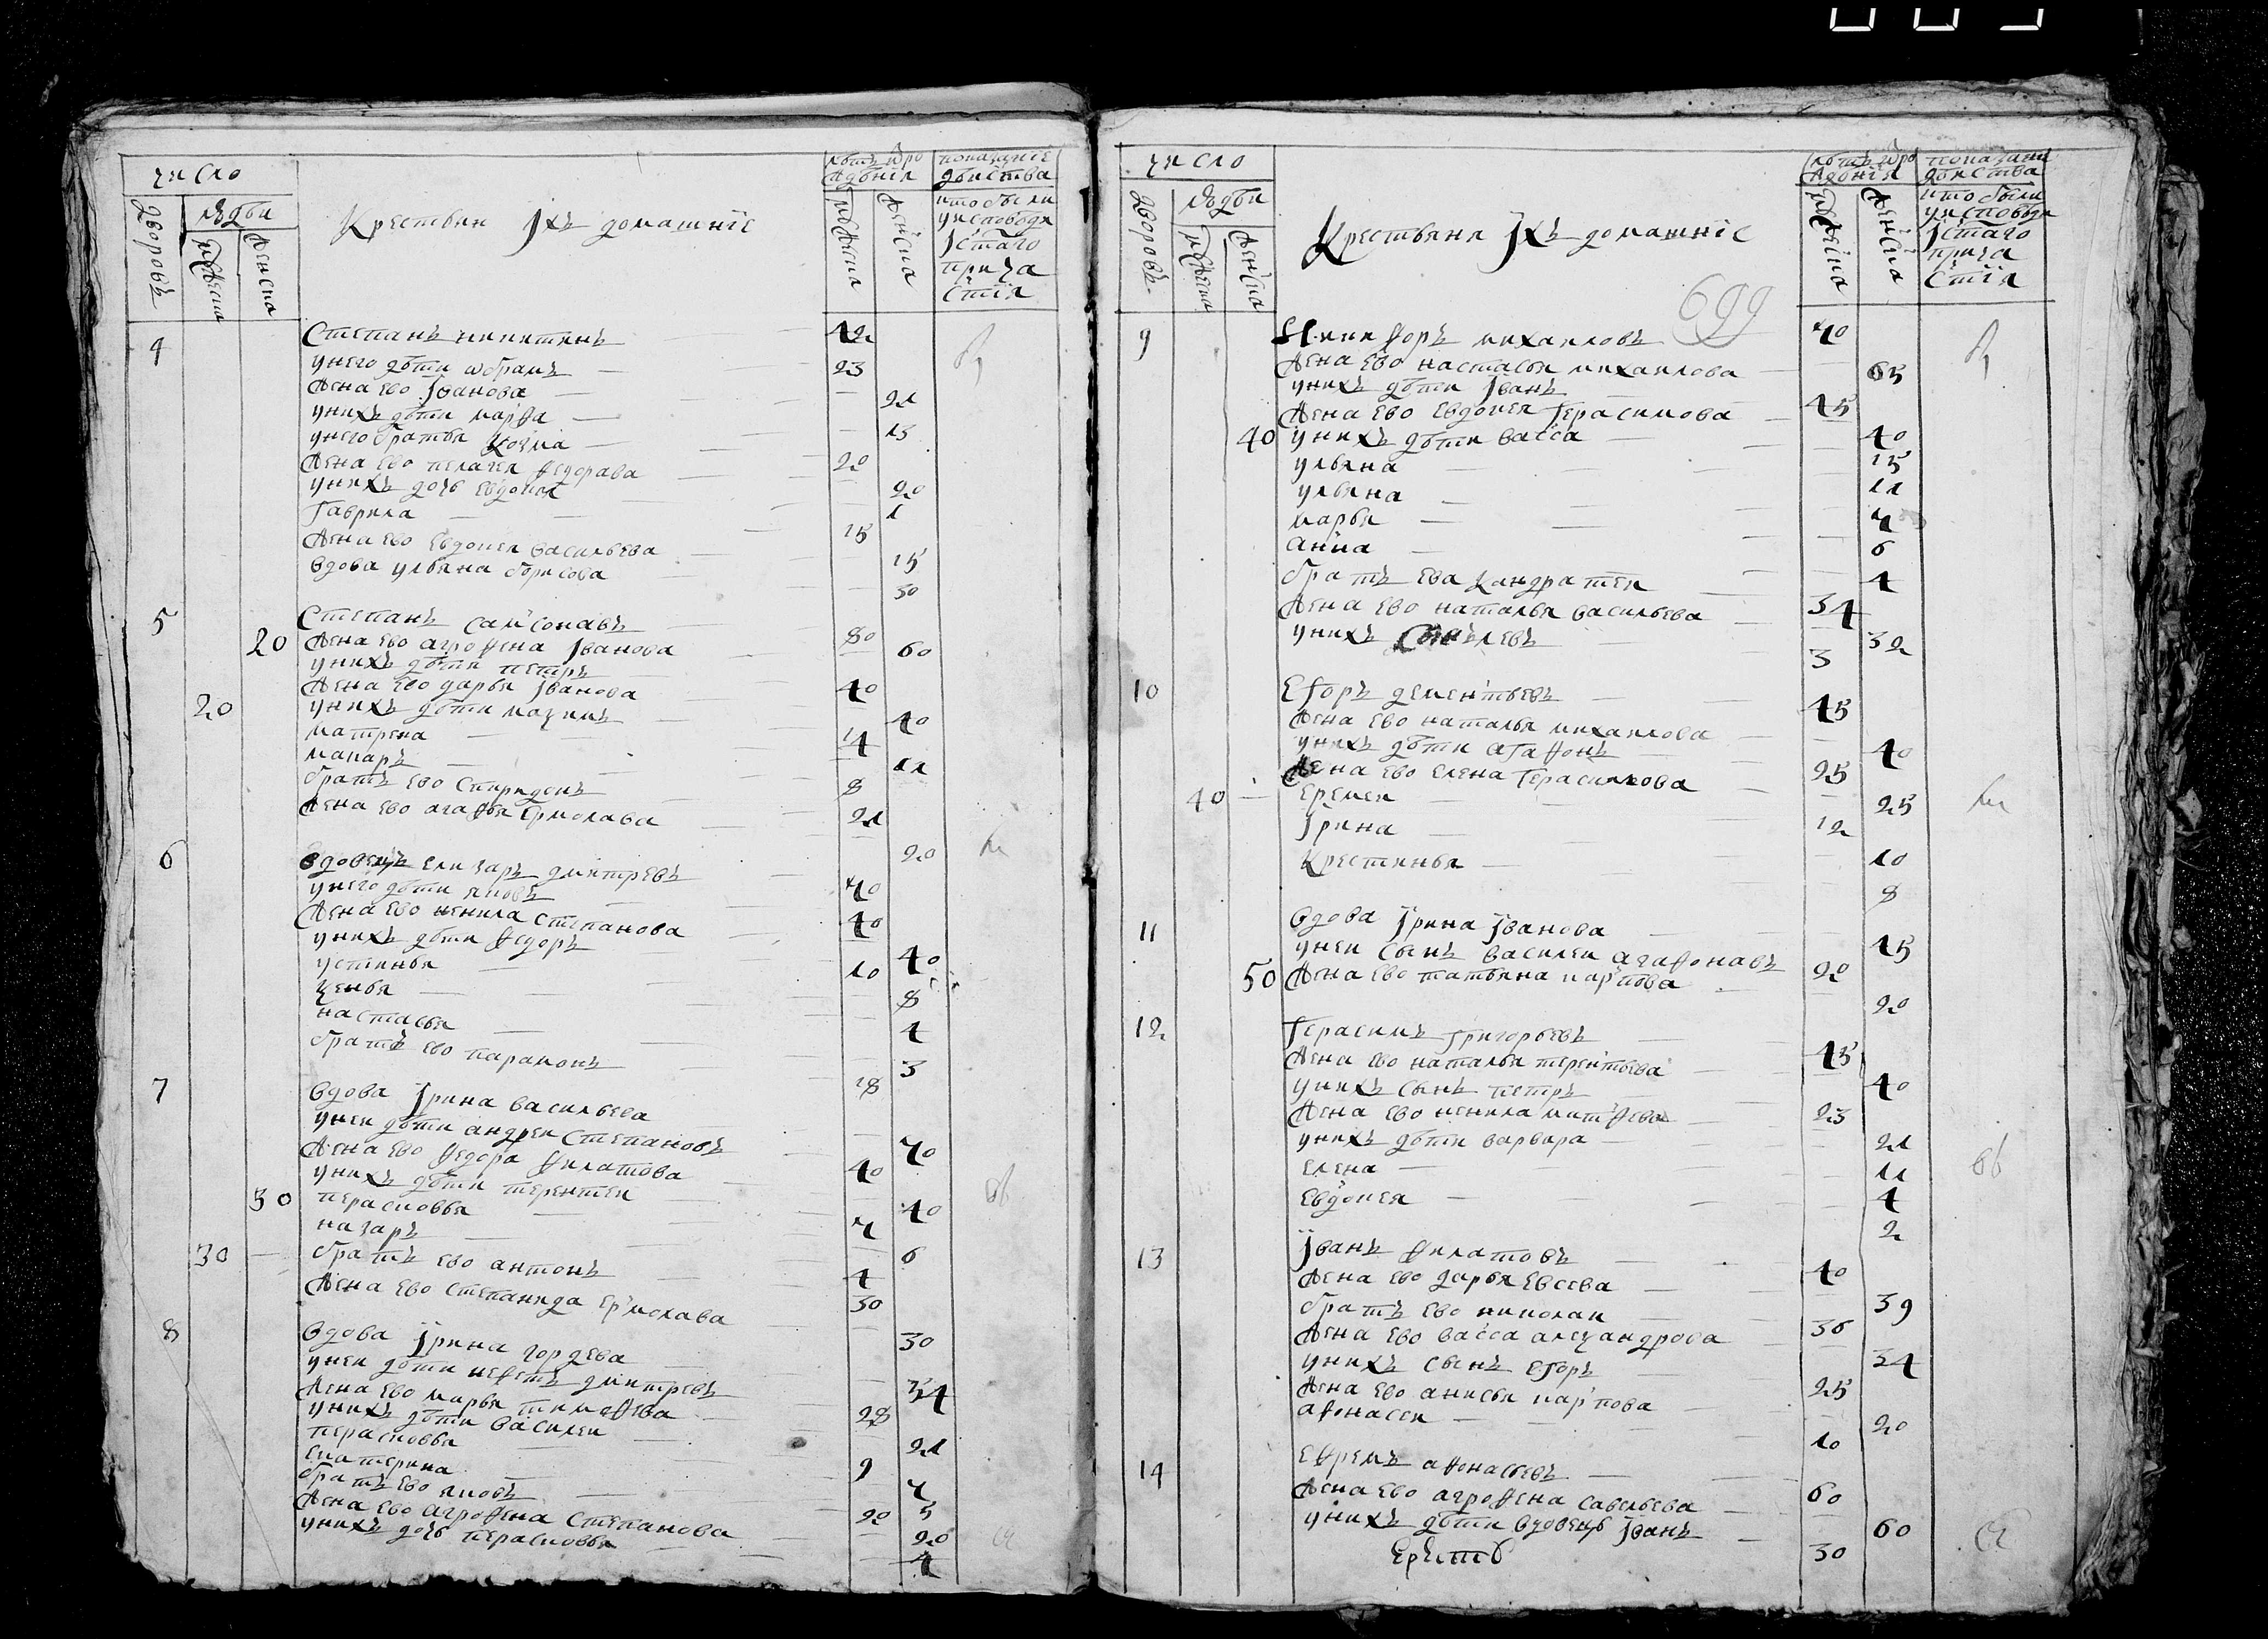 число
дворовъ
людеи
мужеска
женска
Крестьян їхъ домашнїе
лѣтъ ѿро
жденїя
мужеска
женска
показанїе
дѣиства
кто были
уисповѣди
їстаго
прича
стїя
4 Степанъ никитинъ — 42
унего дѣти абрамъ — 23
жена ево їванова — 21
унихъ дѣти марѳа — 13
унего братья козма — 20
жена ево пелагея федорава — 20
унихъ дочь евдокея 1
гаврила — 15
жена ево евдокея васильева — 15
вдова ульяна борисова — 30
5 Степанъ самсонавъ — 80
20 жена ево аграфена їванова — 60
унихъ дѣти петръ 40
жена ево дарья їванова — 40
20 унихъ дѣти мазимъ — 14
матрена — 11
макаръ — 8
братъ ево спиридонъ 21
жена ево агафья ермолава — 20
6 вдовецъ елизаръ дмитревъ 70
унего дѣти яковъ — 40
жена ево ненила степанова — 40
унихъ дѣти федоръ 10
устинья — 8
ксенья — 4
настасья — 3
братъ ево парамонъ 18
7 вдова їрина васильева 70
унеи дѣти андреи степановъ 40
жена ево федора филатова — 40
унихъ дѣти терентеи 7
30 парасковья — 6
назаръ — 4
30 братъ ево антонъ — 30
жена ево степанида ермолава — 30
8 вдова їрина гордева — 54
унеи дѣти дмитревъ 28
жена ево марья тимофева — 21
унихъ дѣти василеи — 9
парасковья 7
екатерина 5
братъ ево яковъ — 20
жена ево аграфена степанова — 20
унихъ дочь парасковья — 4
число
дворовъ
людеи
мужеска
женска
Крестьяня їхъ домашнїе
699
лѣтъ ѿро
жденїя
мужеска
женска
показани
дѣиства
кто были
уисповѣди
їстаго
прича
стїя
9 Никифоръ михаиловъ 70
жена ево настасья михаилова — 65
унихъ дѣти їванъ 45
жена ево евдокея герасимова — 40
40 унихъ дѣти васса — 15
ульяна — 11
ульяна — 7
марья — 6
анна — 4
братъ ева кандратеи — 34
жена ево наталья васильева — 32
унихъ сынъ левъ 3
10 Егоръ дементьевъ — 45
жена ево наталья михаилова — 40
унихъ дѣти агафонъ — 25
жена ево елена герасимова — 25
40 еремеи — 12
їрина — 10
крестинья — 8
11 вдова їрина їванова — 45
унеи сынъ василеи агафонавъ 20
50 жена ево татьяна карпова 20
12 Герасимъ григорьевъ — 45
жена ево наталья терентьева — 40
унихъ сынъ петръ 23
жена ево ненила матфева 21
унихъ дѣти варвара — 11
елена — 4
евдокея — 2
13 їванъ филатовъ — 40
жена ево дарья евсева — 39
братъ ево николаи — 36
жена ево васса алезандрова — 34
унихъ сынъ егоръ — 25
жена ево анисья карпова — 20
афонасеи — 10
14 Ефремъ афонасьевъ — 60
жена ево аграфена савельева — 60
унихъ дѣти вдовецъ їванъ — 30